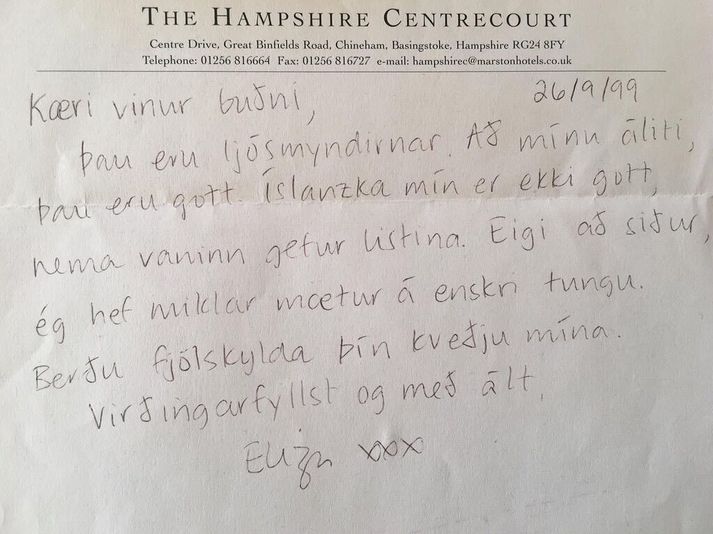 THE HAMPSHIRE CENTRECOURT
Centre Drive, Great Binfields Road, Chineham, Basingstoke, Hampshire RG24 8FY
Telephone: 01256 816664 Fax: 01256 816727 e-mail: hampshirec@marstonhotels.co.uk
26/9/99
Kæri vinur Guðni,
Þau eru ljósmyndirnar. Að mínu áliti,
Þau eru gott. Íslanzka mín er ekki gott,
nema vaninn getur listina. Eigi að síður,
ég hef miklar mætur á enskri tungu.
Berðu fjölskylda þín kveðju mína.
Virðingarfyllst og með ált,
Eliza xxx